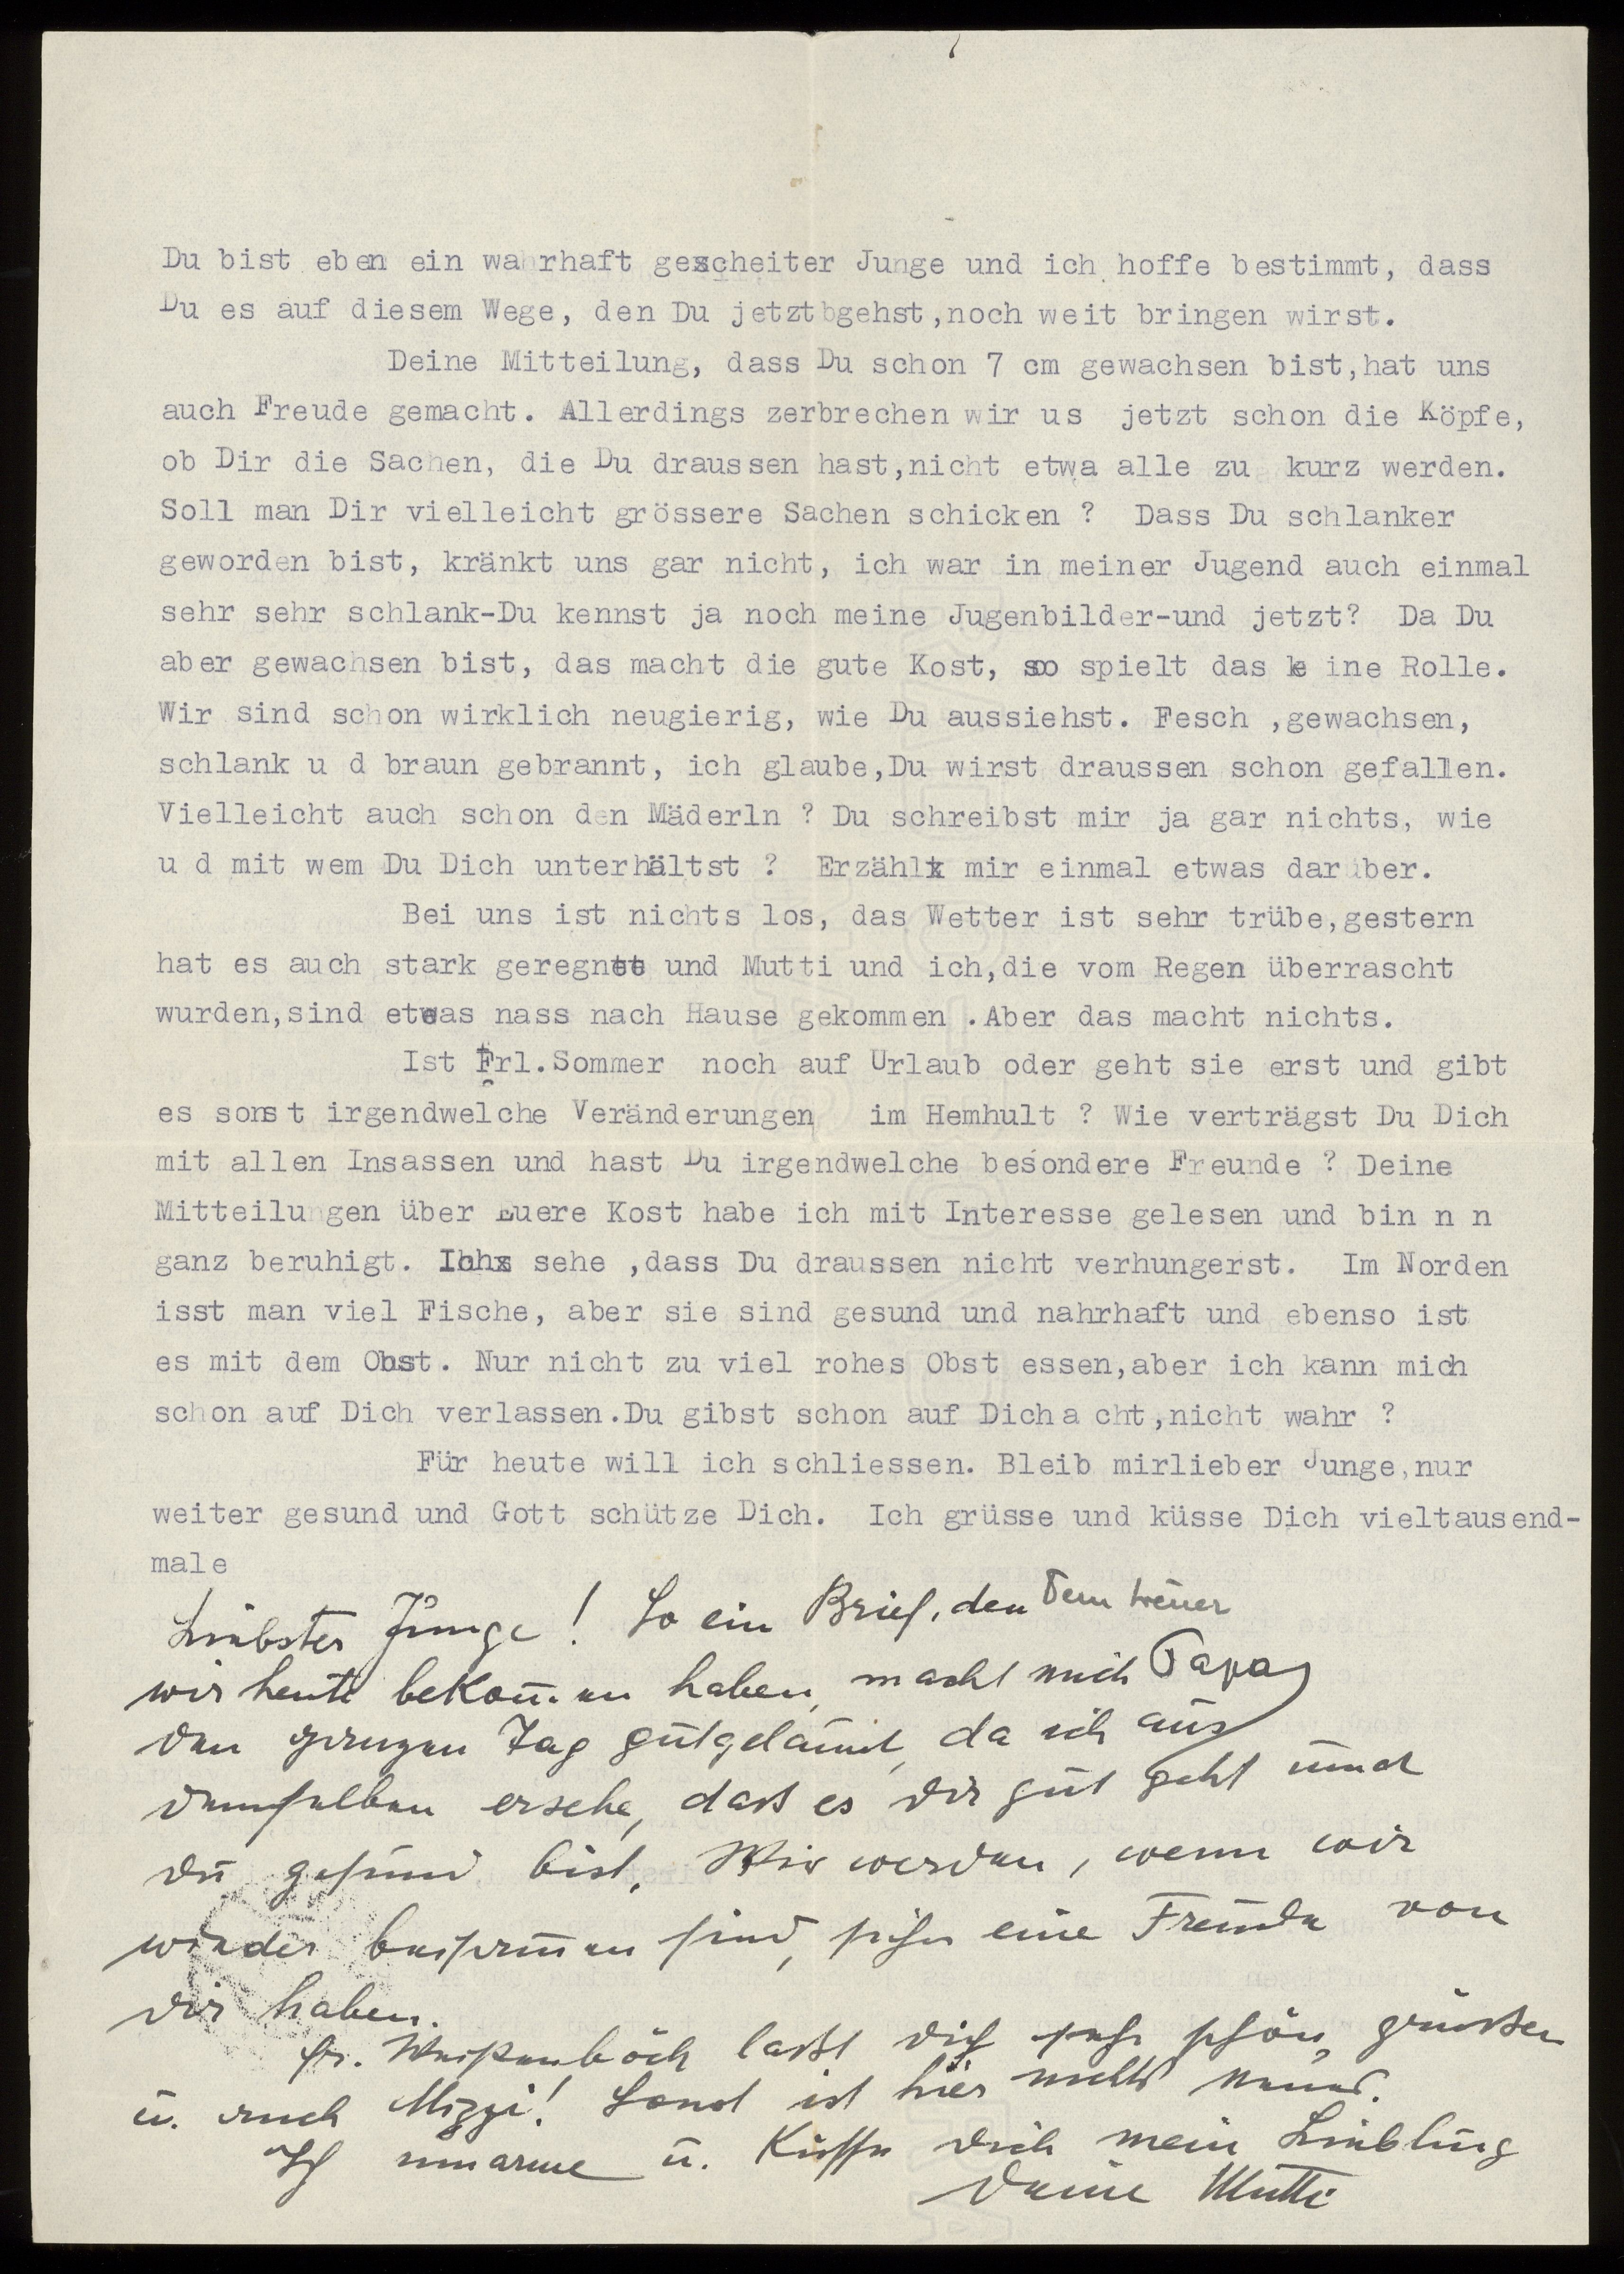 Du bist eben ein wahrhaft gescheiter Junge und ich hoffe bestimmt, dass
Du es auf diesem Wege, den Du jetzt gehst,noch weit bringen wirst.
Deine Mitteilung, dass Du schon 7 cm gewachsen bist,hat uns
auch Freude gemacht. Allerdings zerbrechen wir us jetzt schon die Köpfe,
ob Dir die Sachen, die Du draussen hast,nicht etwa alle zu kurz werden.
Soll man Dir vielleicht grössere Sachen schicken ? Dass Du schlanker
geworden bist, kränkt uns gar nicht, ich war in meiner Jugend auch einmal
sehr sehr schlank-Du kennst ja noch meine Jugenbilder-und jetzt? Da Du
aber gewachsen bist, das macht die gute Kost, so spielt das ke ine Rolle.
Wir sind schon wirklich neugierig, wie Du aussiehst. Fesch ,gewachsen,
schlank u d braun gebrannt, ich glaube,Du wirst draussen schon gefallen.
Vielleicht auch schon den Mäderln ? Du schreibst mir ja gar nichts, wie
u d mit wem Du Dich unterhältst ? Erzähl mir einmal etwas darüber.
Bei uns ist nichts los, das Wetter ist sehr trübe,gestern
hat es auch stark geregnet und Mutti und ich,die vom Regen überrascht
wurden,sind etwas nass nach Hause gekommen .Aber das macht nichts.
Ist Frl.Sommer noch auf Urlaub oder geht sie erst und gibt
es sonst irgendwelche Veränderungen im Hemhult ? Wie verträgst Du Dich
mit allen Insassen und hast Du irgendwelche besondere Freunde ? Deine
Mitteilungen über Euere Kost habe ich mit Interesse gelesen und bin n n
ganz beruhigt. Ich sehe ,dass Du draussen nicht verhungerst. Im Norden
isst man viel Fische, aber sie sind gesund und nahrhaft und ebenso ist
es mit dem Obst. Nur nicht zu viel rohes Obst essen,aber ich kann mich
schon auf Dich verlassen.Du gibst schon auf Dich a cht,nicht wahr ?
Für heute will ich schliessen. Bleib mirlieber Junge,nur
weiter gesund und Gott schütze Dich. Ich grüsse und küsse Dich vieltausend-
male
Dein treuer
Papa
Liebster Junge! So ein Brief, den
wir heute bekommen haben, macht mich
den ganzen Tag gutgelaunt, da ich aus
demselben ersehe, daß es dir gut geht und
du gesund bist. Wir werden, wenn wir
wieder beisammen sind, sicher eine Freude von
dir haben.
Fr. Weißenböck laßt dich sehr schön grüßen
u. auch Mizzi! Sonst ist hier nichts neues.
Ich umarme u. Küsse dich mein Liebling
deine Mutti